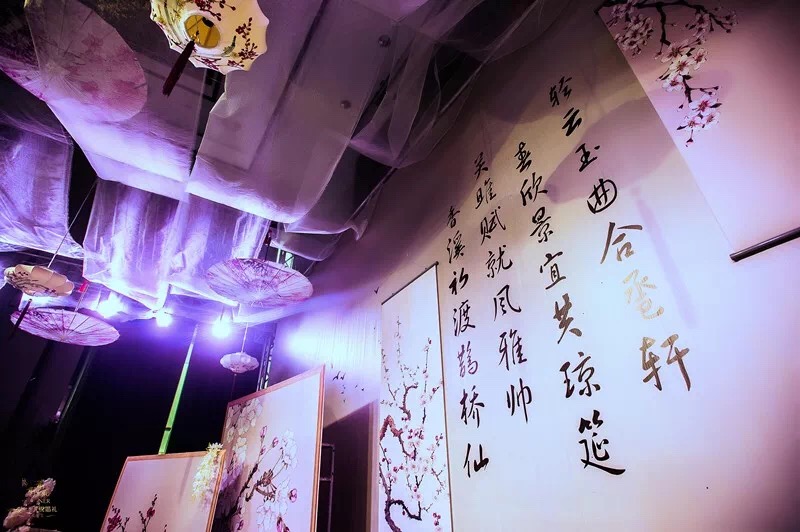 轻云玉曲合卺轩
春欣景宜共琼筵
关雎赋就风雅帅
香溪初渡鹊桥仙